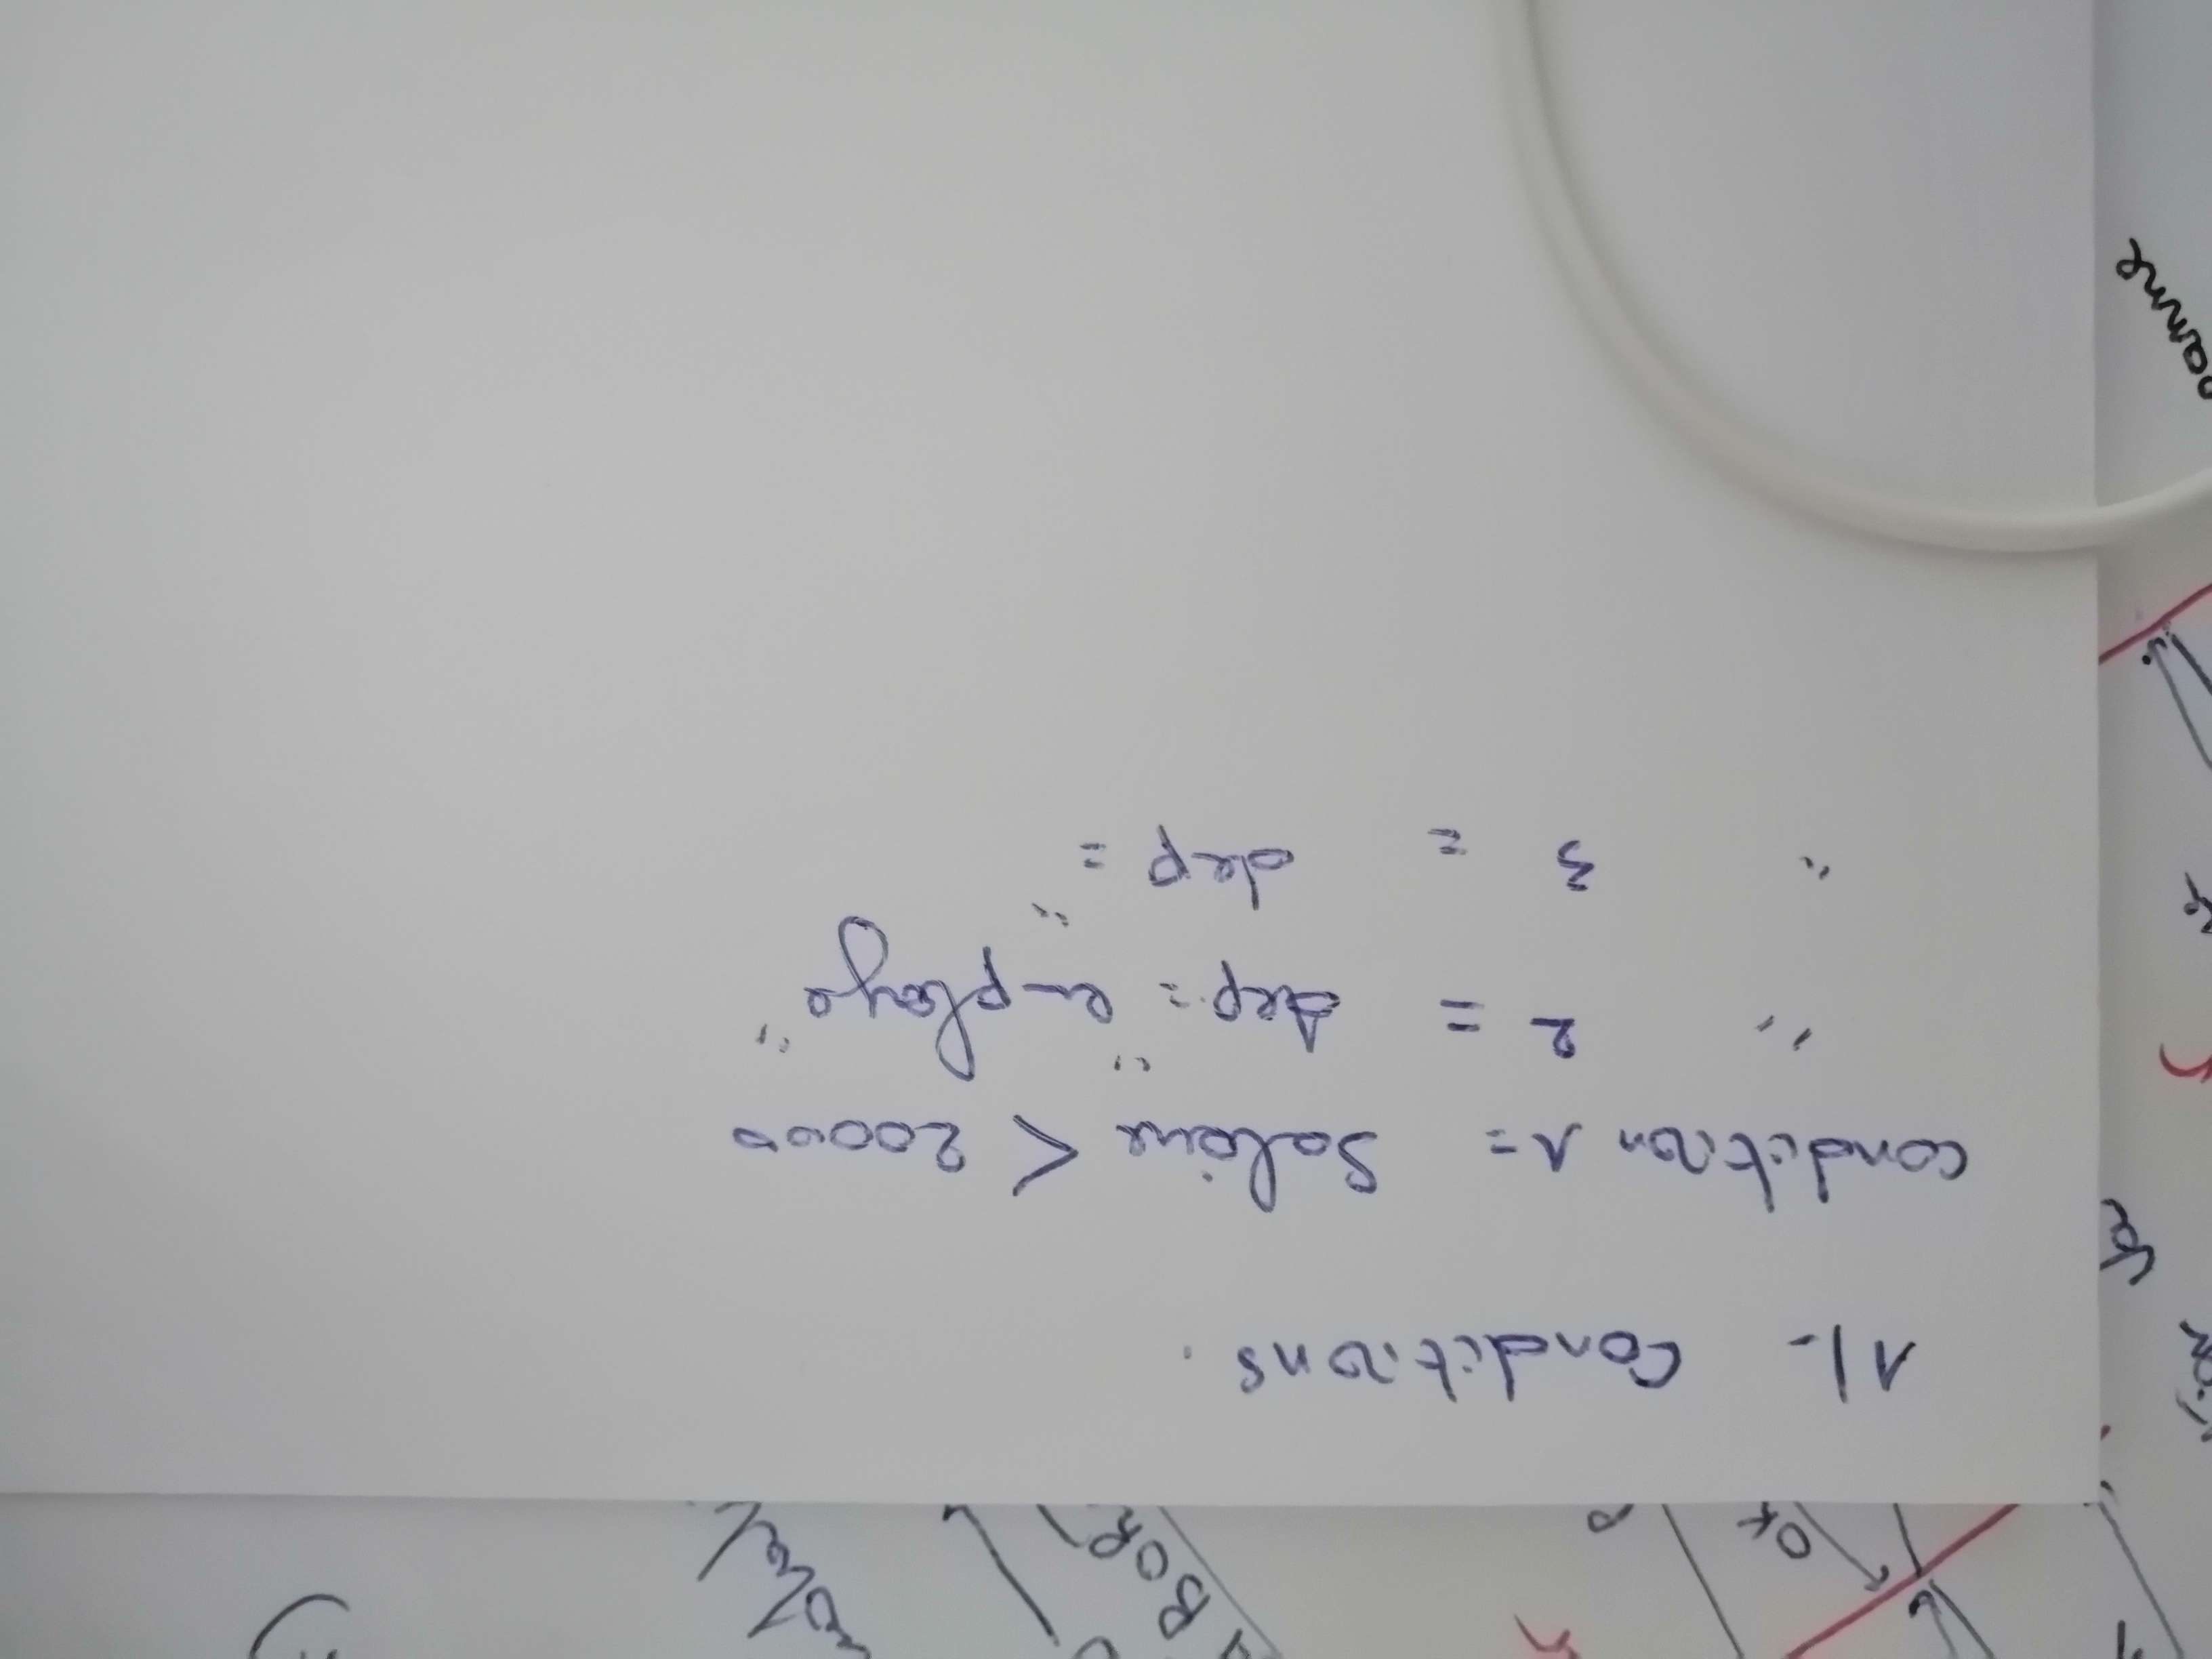 OK
ABORT
1/. Conditions.
condition 1 = Salaire < 20000
" 2 = dep = "employe"
" 3 = dep = "
panne